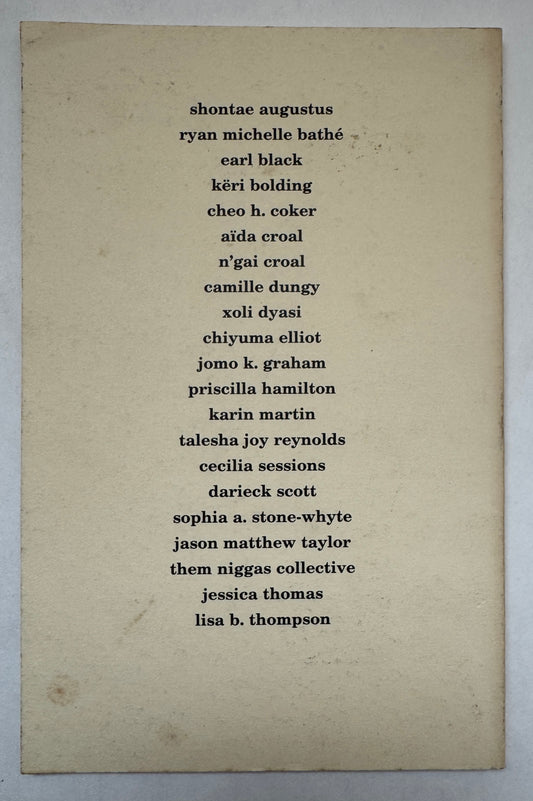 shontae augustus
ryan michelle bathé
earl black
këri bolding
cheo h. coker
aïda croal
n’gai croal
camille dungy
xoli dyasi
chiyuma elliot
jomo k. graham
priscilla hamilton
karin martin
talesha joy reynolds
cecilia sessions
darieck scott
sophia a. stone-whyte
jason matthew taylor
them niggas collective
jessica thomas
lisa b. thompson